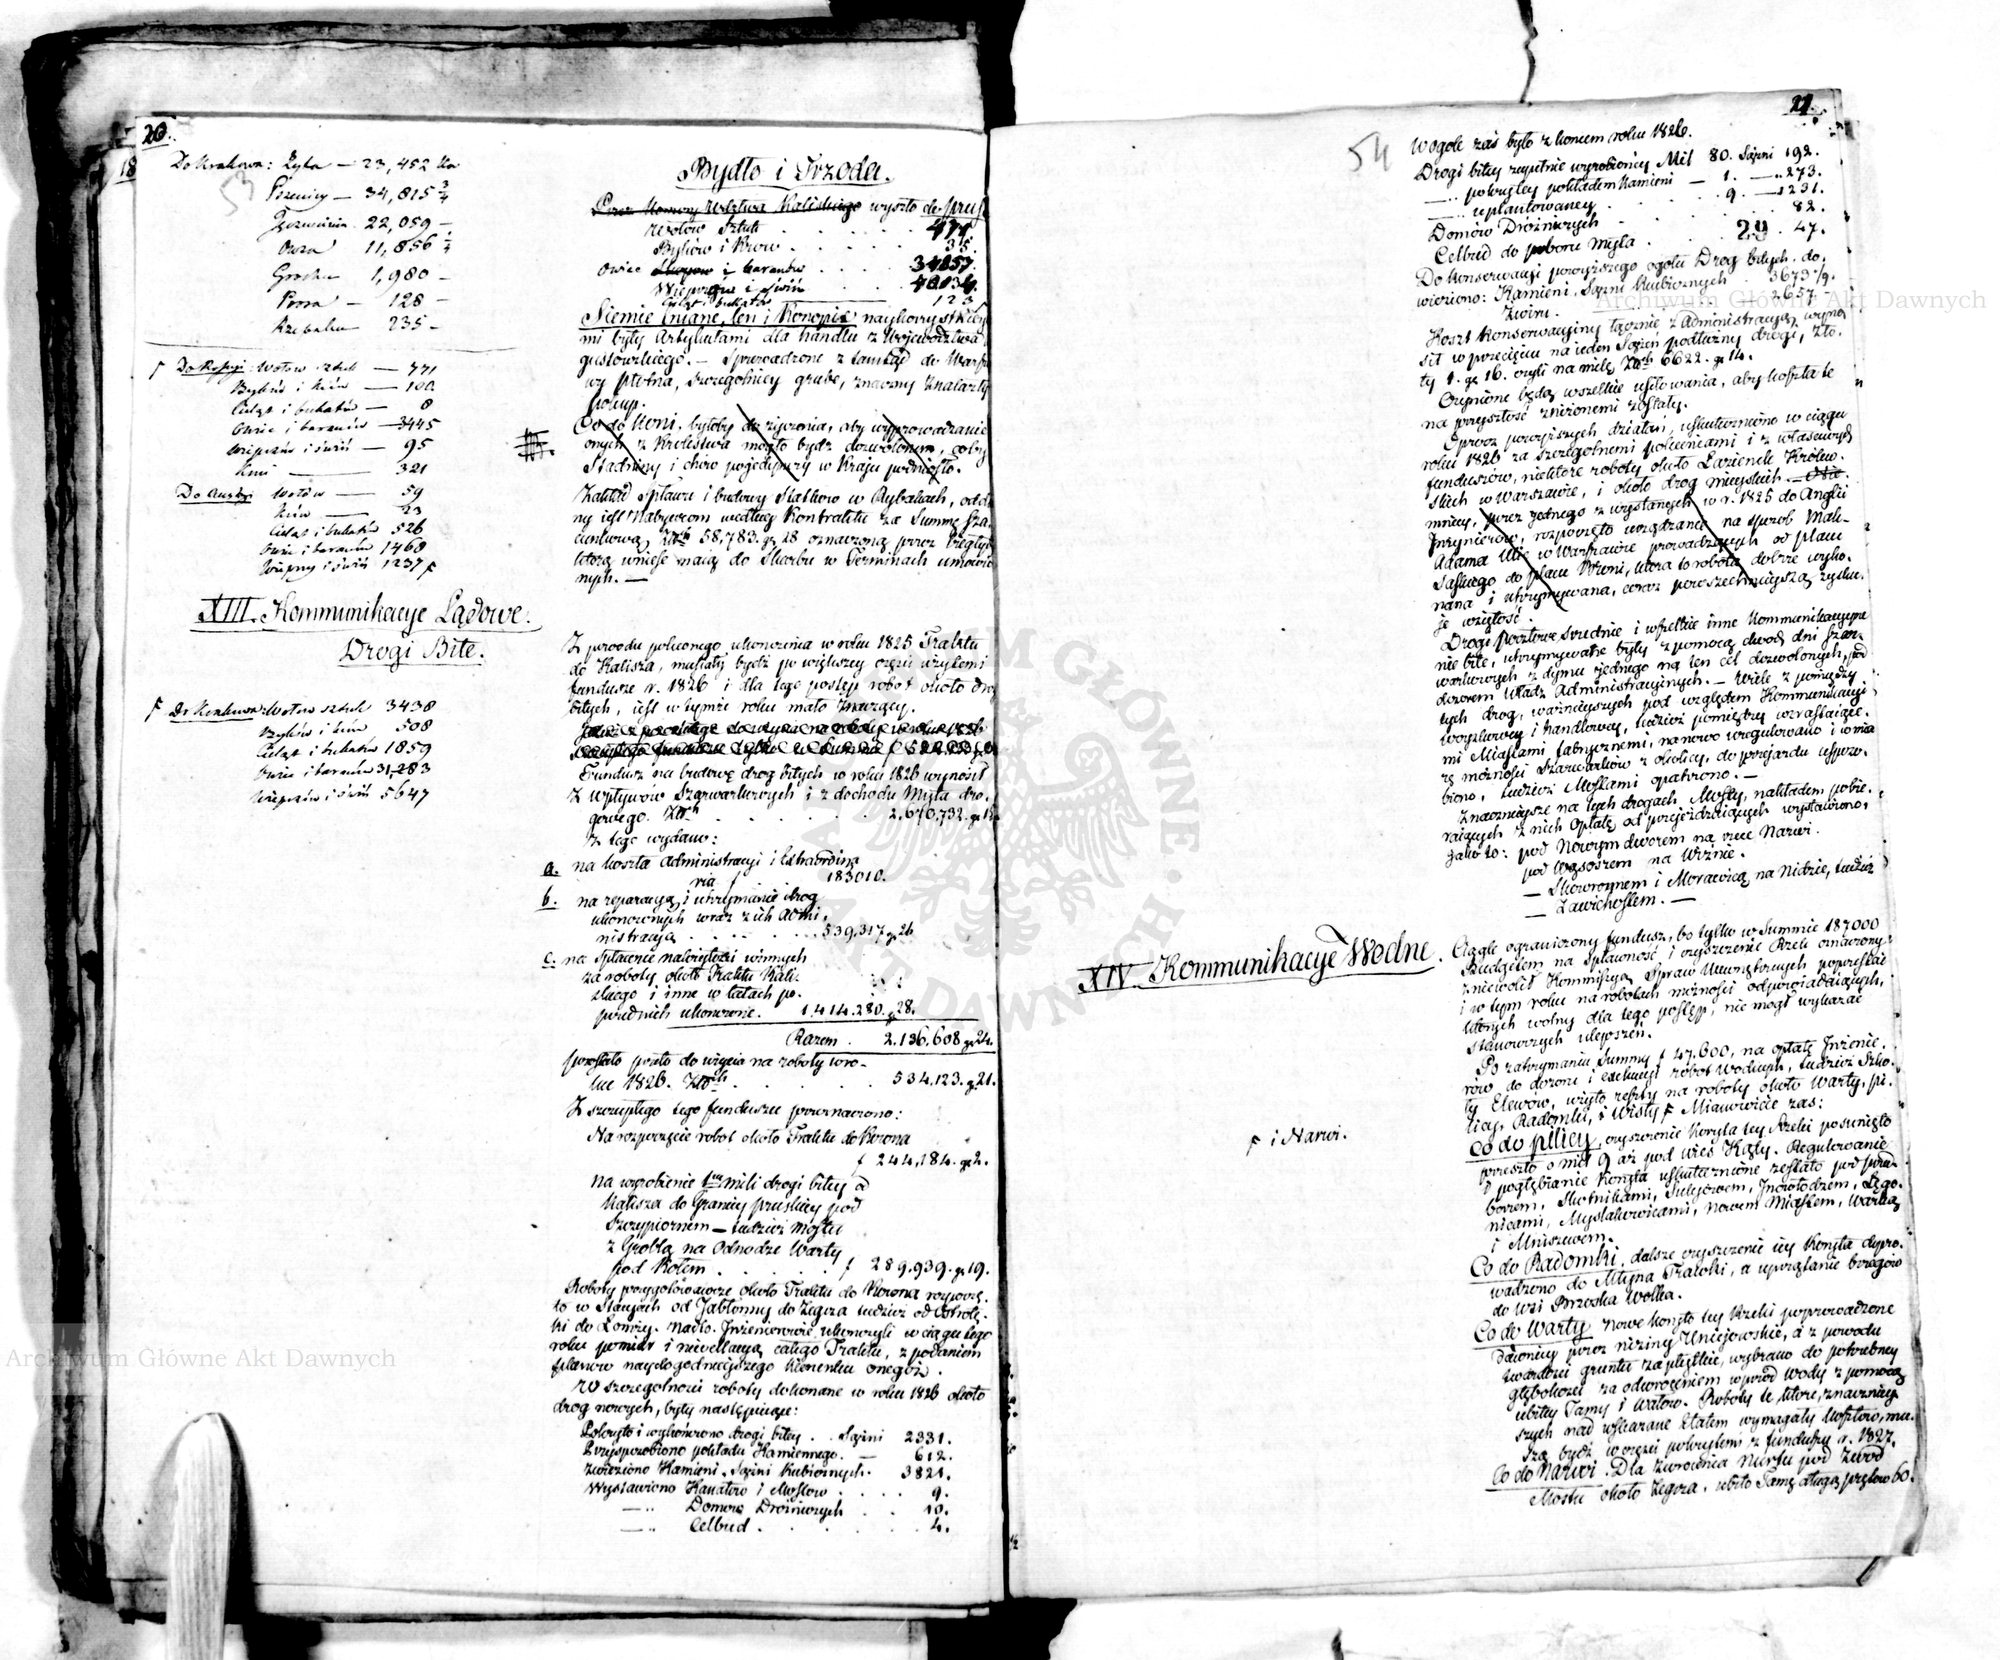 20.
53
Do Krakowa: Żyta — 23,452 ko
Pszenicy — 34,815 3/4
Jęczmienia 22,059 —
Owsa 11,856 1/4
Grochu 1,980 —
Prosa — 128 —
Rzepaku 235 —
Do Rossyi: Wołów sztuk — 771
Byków i krów — 100
Cieląt i bukatów — 8
Owiec i baranów — 3445
Wieprzów i świń — 95
Koni — 321
Do Austryi Wołów — 59
Krów — 23
Cieląt i bukatów 526
Owiec i baranów 1468
Wieprzy i świń 1237
XIII. Kommunikacye Lądowe.
Drogi Bite.
Do Krakowa: Wołów sztuk 3438
Byków i krów 508
Cieląt i bukatów 1859
Owiec i baranów 31,283
Wieprzów i świń 5647
Bydło i Trzoda.
Przez Komory Wdztwa Kaliskiego wyszło do Pruss
Wołów Sztuk
Byków i Krów 35.
Owiec i baranów 34857.
Wieprzów i świń
Cieląt i bukatów 123
Siemie lniane, len i Konopie naykorzystniey
mi były Artykułami dla handlu z Województwa
gustowskiego. — Sprowadzone z tamtąd do Warsza
wy płótna, szczególniey grube, znaczny znalazły
pokup.
Co do Koni, byłoby do życzenia, aby wyprowadzanie
onych z Królestwa mogło bydź dozwolonem, coby
Stadniny i chów pojedyńczy w Kraju podniosło.
Zakład Spławu i budowy Statków w Rybakach, odda
ny jest Nabywcom według Kontraktu za Summę sza
cunkową Złp 58,783. gr 28 oznaczoną przez
którą wnieść maią do Skarbu w Terminach umówio
nych. —
Z powodu policonego ukończenia w roku 1825 Traktu
do Kalisza, musiały bydź po większey części użytemi
fundusze r. 1826 i dla tego postęp robót około dróg
bitych, jest w tymże roku mało znaczący.
Fundusz na budowę dróg bitych w roku 1826 wynosił
Z wpływów Szarwarkowych i z dochodu Myta dro-
gowego. Złp 2,670,732. gr 15
Z tego wydano:
a. na koszta Administracyi i Extraordina
ria f 183010.
b. na reparacyą i utrzymanie dróg
ukończonych wraz z ich Admi-
nistracyą 539,317 gr 26
c. na spłacenie należytości winnych
za roboty około Traktu Kali-
skiego i inne w latach po-
przednich ukończone. 1,414,280. gr 28.
Razem. 2,136,608 gr 24.
pozostało przeto do użycia na roboty w ro-
ku 1826. Złp 534,123. gr 21.
Z szczupłego tego funduszu przeznaczono:
Na rozpoczęcie robót około Traktu do Kowna
f 244,184. gr 2.
na wyrobienie 1ney mili drogi bitey od
Kalisza do Granicy pruskiey pod
Szczypiornem — tudzież Mostu
z Groblą na Odnodze Warty
pod Kołem f 289,939. gr 19.
Roboty przygotowawcze około Traktu do Kowna rozpoczę-
to w Stacyach od Jabłonny do Zegrza tudzież od Ostrołę-
ki do Łomży. Nadto Inżenierowie ukończyli w ciągu tego
roku pomiar i niwellacyą całego Traktu, z podaniem
planów naydogodnieyszego kierunku onegoż.
W szczególności roboty dokonane w roku 1826 około
dróg nowych, były następuiące:
Pokryto i wykończono drogi bitey Sążni 2331.
Przysposobiono pokładu Kamiennego. — 612.
Zwieziono Kamieni, Sążni Kubicznych. 3821.
Wystawiono Kanałów i Mostów 9.
— Domów Dróżniczych 10.
— Celbud 4.
21.
54
W ogóle zaś było z końcem roku 1826.
Drogi bitey zupełnie wyrobioney Mil 80. Sążni 192.
— pokrytey pokładem Kamieni — 1. — 273.
— uplantowaney 9. — 1231.
Domów Dróżniczych 82.
Celbud do poboru Myta 29. 47.
Do Konserwacyi powyższego ogółu Dróg bitych, do-
wieziono: Kamieni, Sążni Kubicznych 3673
Żwiru. 2657
Koszt Konserwacyiny łącznie z Administracyą wyno-
sił w przecięciu na ieden Sążeń podłużny drogi, zło-
ty 1. gr 16. czyli na milę Złp 6622. gr 14.
Czynione będą wszelkie usiłowania, aby koszta te
na przyszłość zniżonemi zostały.
Oprócz powyższych działań, uskuteczniono w ciągu
roku 1826 za szczególnemi poleceniami i z właściwych
funduszów, niektóre roboty około Łazienek Królew-
skich w Warszawie, i około dróg mieyskich.
mniey, przez jednego z wysłanych w r. 1825 do Anglii
Inżynierów, rozpoczęto urządzanie na sposób Mak-
Adama Ulic w Warszawie prowadzących od placu
Saskiego do placu Broni, która to robota dobrze wyko-
nana i utrzymywana, coraz powszechnieyszą zysku-
je wziętość.
Drogi Pocztowe średnie i wszelkie inne Kommunikacyine
nie bite, utrzymywane były z pomocą dwóch dni Szar-
warkowych z dymu jednego na ten cel dozwolonych, pod
dozorem Władz Administracyinych. — Wiele z pomiędzy
tych dróg, ważnieyszych pod względem Kommunikacyi
woyskowey i handlowey, tudzież pomiędzy wzrastaiące-
mi Miastami fabrycznemi, na nowo uregulowano i w mia-
rę możności Szarwarków z okolicy, do przejazdu usposo-
biono, tudzież Mostami opatrzono. —
Znacznieysze na tych drogach Mosty, nakładem pobie-
raiących z nich Opłatę od przejeżdżaiących wystawiono,
jako to: pod Nowym dworem na rzece Narwi.
pod Wąsoszem na Wiźnie.
— Skowronnem i Morawicą na Nidzie, tudzież
— Zawichostem. —
XIV. Kommunikacye Wodne.
Ciągle ograniczony fundusz, bo tylko w Summie 187000
Budżetem na Spławność i oczyszczenie Rzek oznaczony,
zniewolił Kommissyą Spraw Wewnętrznych poprzestać
i w tym roku na robotach możności odpowiadaiących,
których wolny dla tego postęp, nie mógł wykazać
stanowczych ulepszeń.
Po zatrzymaniu Summy f 47,600, na opłatę Inżenie-
rów do dozoru i exekucyi robót Wodnych, tudzież Szko-
ły Elewów, użyto reszty na roboty około Warty, Pi-
licy, Radomki, i Wisły Mianowicie zaś:
i Narwi.
Co do Pilicy, oczyszczenie Koryta tey Rzeki posunięto
przeszło o mil 9 aż pod wieś Kąty. Regulowanie
i pogłębianie Koryta uskutecznione zostało pod Przed-
borzem, Skotnikami, Sulejowem, Inowłodzem, Łęgo-
nicami, Mysłakowicami, Nowem Miastem, Warką
i Mniszewem.
Co do Radomki, dalsze oczyszczenie iey Koryta dopro-
wadzono do Młyna Traioki, a uprzątanie brzegów
do wsi Brzoska Wolka.
Co do Warty Nowe koryto tey Rzeki poprowadzone
dawniey przez niziny Uniejowskie, a z powodu
twardości gruntu za płytkie, wybrano do potrzebney
głębokości za odwróceniem wprzód wody z pomocą
ubitey Tamy i Wałów. Roboty te które, znaczniey-
szych nad wskazane Etatem wymagały kosztów, mu-
szą bydź w części pokrytemi z funduszu r. 1827.
Co do Narwi. Dla zwrócenia Nurtu pod Zwód
Mostu około Zegrza, ubito Tamę długą prętów 60.
Archiwum Główne Akt Dawnych
Archiwum Główne Akt Dawnych